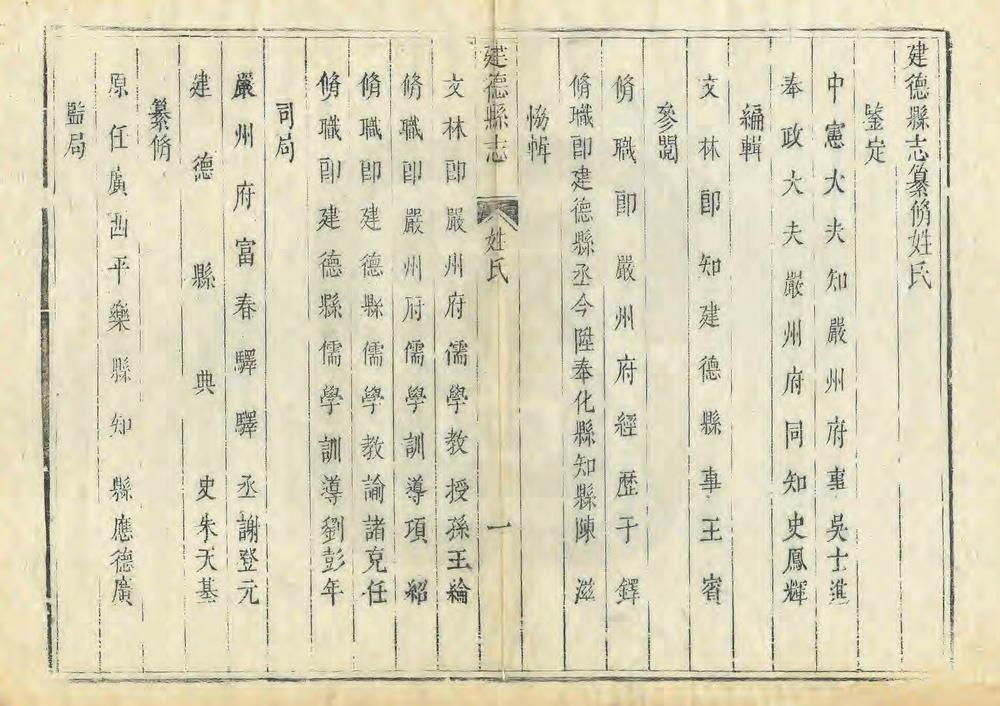 建德縣志纂脩姓氏
鉴定
中憲大夫知嚴州府事吳士進
奉政大夫嚴州府同知史鳳輝
編輯
文林郎知建德縣事王賓
參閱
脩職郎嚴州府經歷于鐸
脩職郎建德縣丞今陞奉化縣知縣陳滋
協輯
建德縣志 姓氏 一
文林郎嚴州府儒學教授孫王綸
脩職郎嚴州府儒學訓導項紹
脩職郎建德縣儒學教諭諸克任
脩職郎建德縣儒學訓導劉彭年
司局
嚴州府富春驛驛丞謝登元
建德縣典史朱天基
纂脩
原任廣西平樂縣知縣應德廣
監局